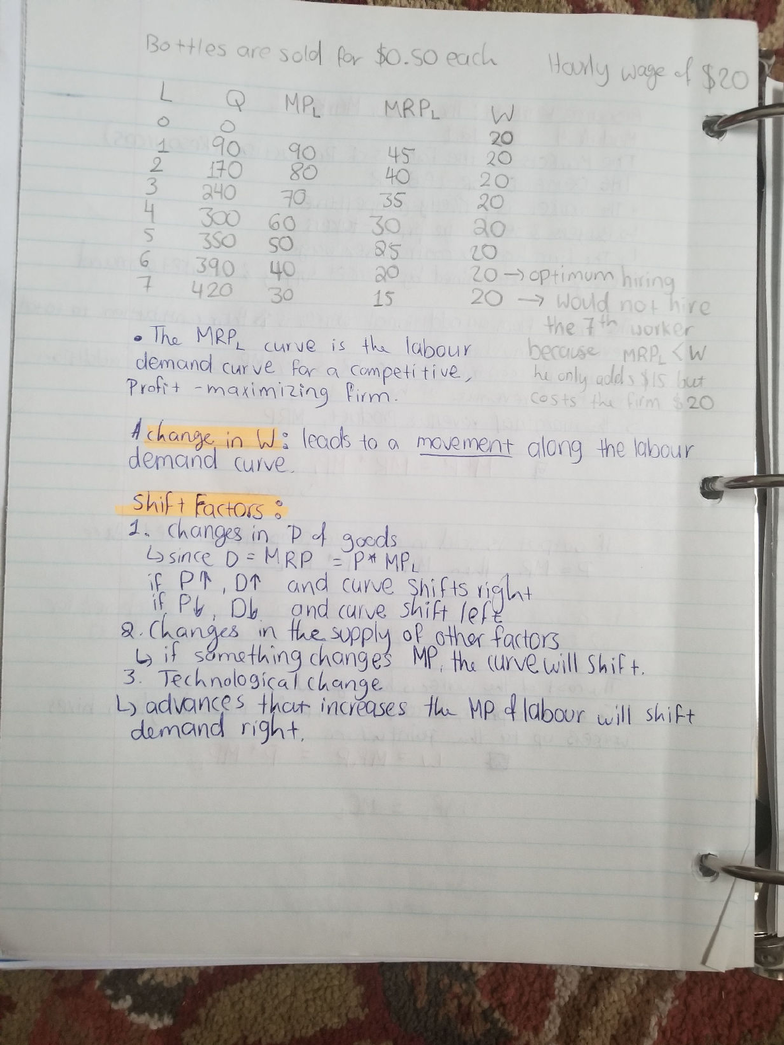 Bottles are sold for $0.50 each Hourly wage of $20
L Q MPL MRPL W
0 0 20
1 90 90 45 20
2 170 80 40 20
3 240 70 35 20
4 300 60 30 20
5 350 50 25 20
6 390 40 20 20 → optimum hiring
7 420 30 15 20 → would not hire
the 7th worker
because MRPL < W
he only adds $15 but
costs the firm $20
• The MRPL curve is the labour
demand curve for a competitive,
Profit -maximizing firm.
A change in W: leads to a movement along the labour
demand curve.
Shift Factors:
1. changes in P of goods
↳ since D = MRP = P* MPL
if P↑, D↑ and curve shifts right
if P↓, D↓ and curve shift left
2. Changes in the supply of other factors
↳ if something changes MP, the curve will shift.
3. Technological change
↳ advances that increases the MP of labour will shift
demand right.